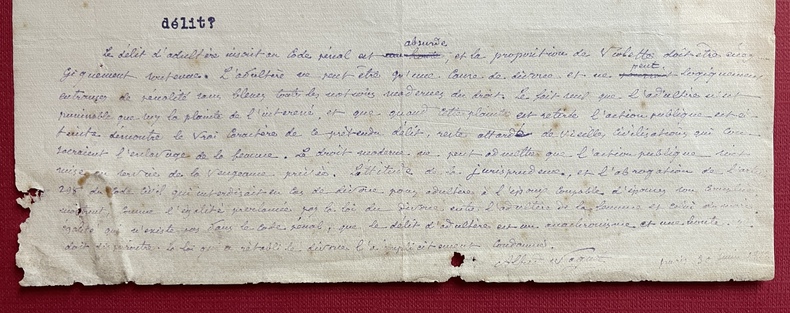 délit?
absurde
Le délit d'adultère inscrit au Code pénal est et la proposition de Viobette doit être éner-
giquement soutenue. L'adultère ne peut être qu'une cause de divorce et ne peut logiquement
entrainer de pénalité sans blesser toutes les notions modernes du droit. Le fait seul que l'adultère n'est
punissable que sur la plainte de l'intéressé, et que quand cette plainte est retirée l'action publique est é-
teinte démontre le vrai caractère de ce prétendu délit, reste attardé de vieilles civilisations qui con-
sacraient l'esclavage de la femme. Le droit moderne ne peut admettre que l'action publique soit
mise au service de la vengeance privée. L'attitude de la jurisprudence, et l'abrogation de l'art.
du Code Civil qui interdisait en cas de divorce pour adultère à l'époux coupable d'épouser son complice
comme l'égalité proclamée par la loi du divorce entre l'adultère de la femme et celui du mari
égalité qui n'existe pas dans le code pénal, que le délit d'adultère est un anachronisme et une honte.
doit disparaître la loi qui a rétabli le divorce l'a implicitement condamné.
Paris